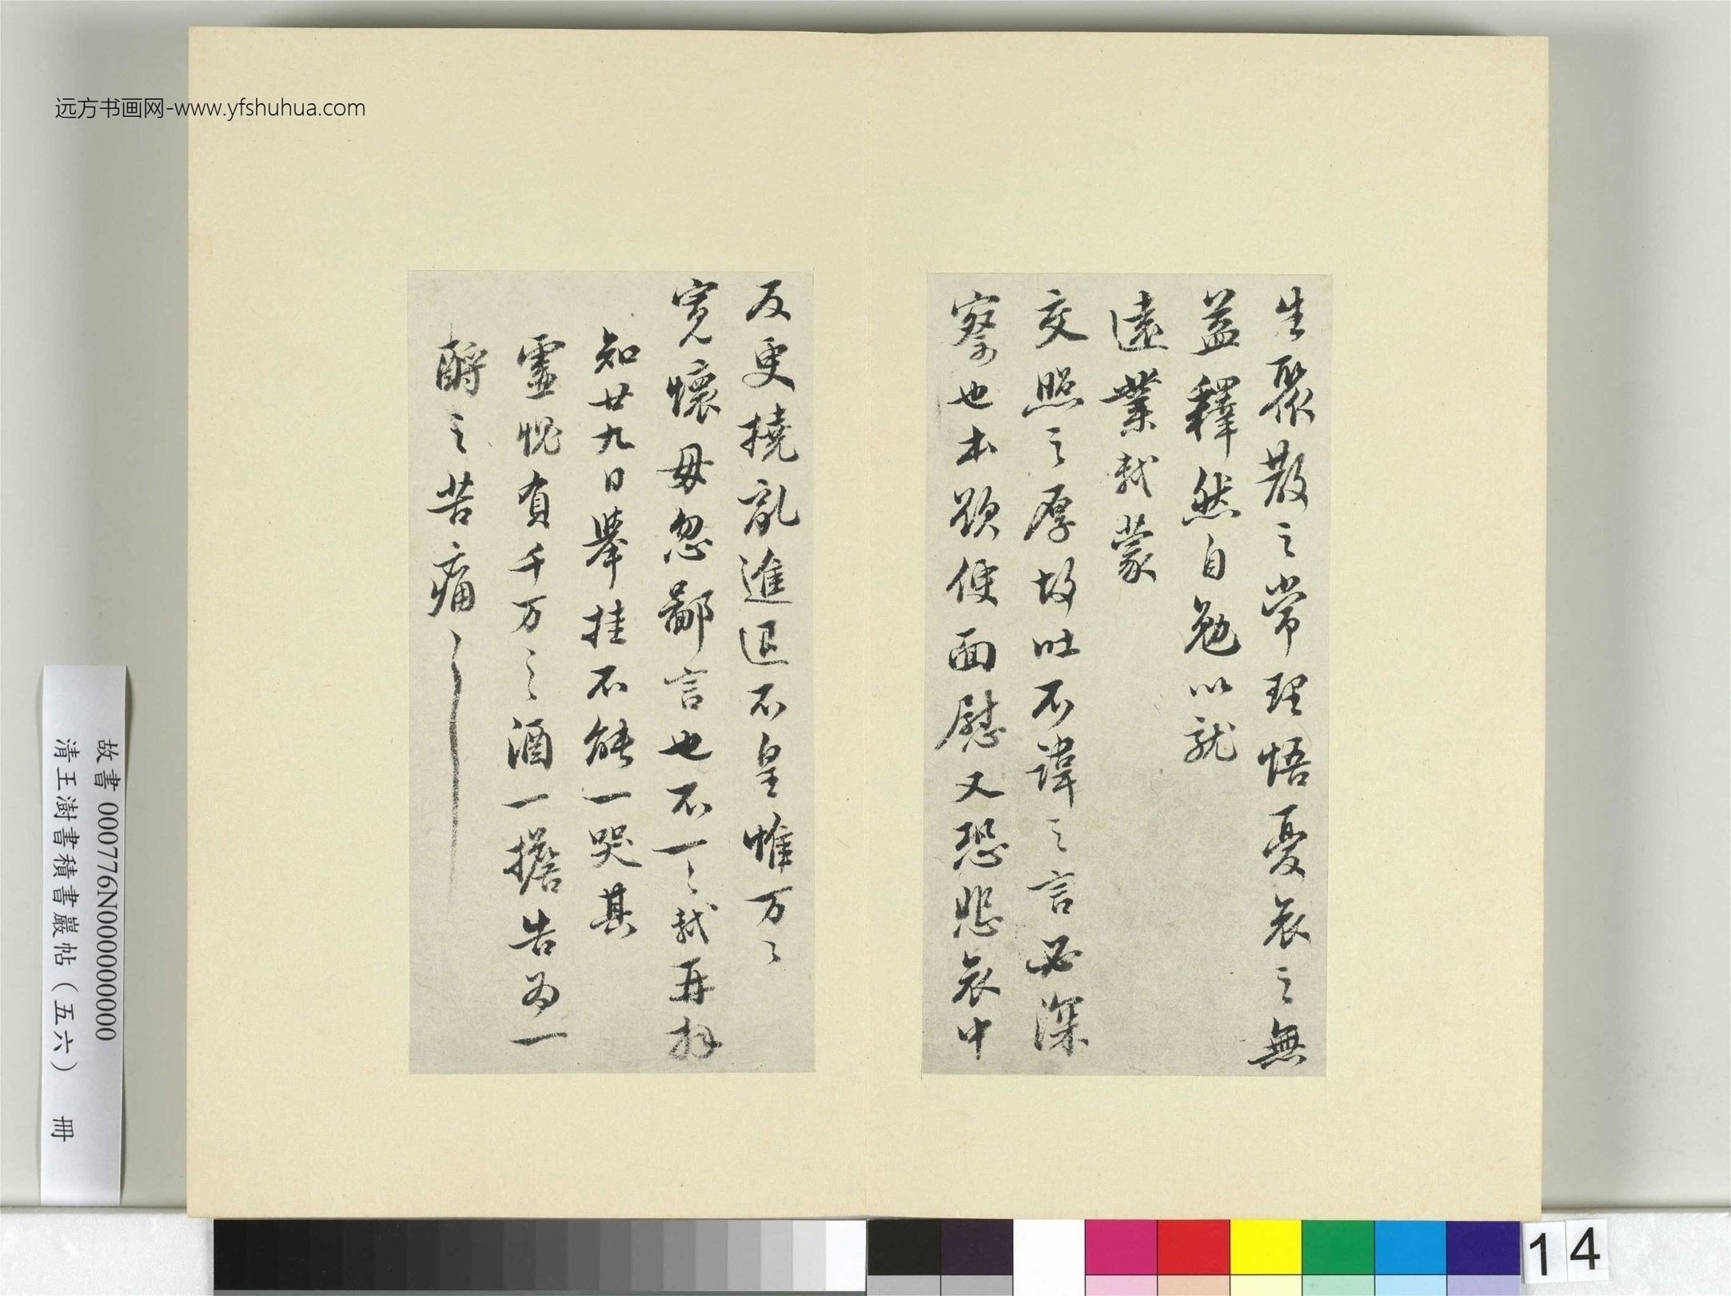 远方书画网-www.yfshuhua.com
生聚散之常理悟憂哀之無
益釋然自勉以就
遠業軾蒙
交照之厚故吐不諱之言必深
察也本欲便面慰又恐悲哀中
反更撓亂進退不皇惟万々
寛懷毋忽鄙言也不一々軾再拜
知廿九日舉挂不能一哭其
靈愧負千万々酒一擔告為一
酹之苦痛々
故書 000776N000000000
清王澍書積書巖帖（五六） 冊
14